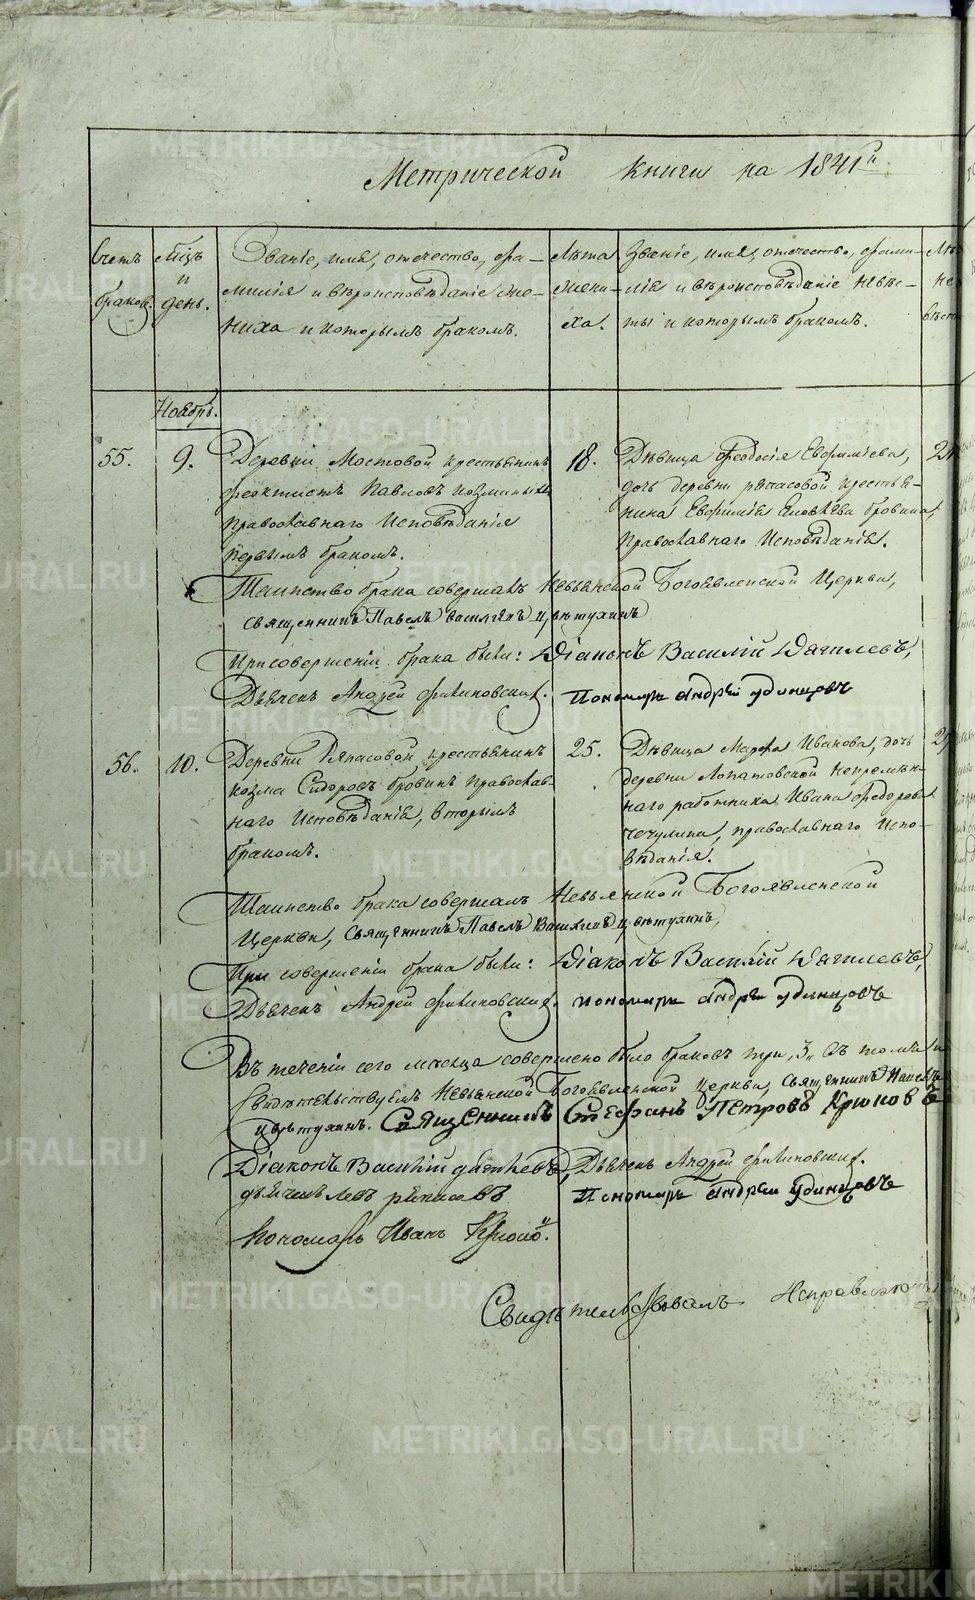 Метрической книги на 1841й
Счетъ браков. Мѣцъ и день. Званіе, имя, отечество, фа-
милія и вѣроисповѣданіе же-
ниха и которымъ бракомъ.
Лѣта
жени-
ха.
Званіе, имя, отечество, фами-
лія и вѣроисповѣданіе невѣс-
ты и которымъ бракомъ.
Лѣ
не
вѣст
Ноябрь.
55. 9. Деревни Мостовой крестьянинъ
Феоктистъ Павловъ
православнаго исповѣданія
первымъ бракомъ.
18.
Дѣвица Феодосія Евфиміева,
дочь деревни Рѣпасовой крестья-
нина Евфимія Бровина,
православнаго исповѣданія.
Таинство брака совершалъ Невьянской Богоявленской Церкви,
священникъ Павелъ Васильевъ Цвѣтухинъ
При совершеніи брака были: Діаконъ Василій Дягилевъ,
Дьячекъ Андрей Фиктиновскій. Пономарь Андрей Удинцовъ
56. 10. Деревни Рѣпасовой крестьянинъ
Козма Сидоровъ Бровинъ православ-
наго исповѣданія, вторымъ
бракомъ.
25.
Дѣвица Марфа Иванова, дочь
деревни Лопатовской непремѣн-
наго работника Ивана Федорова
Чечулина, православнаго испо-
вѣданія.
Таинство брака совершалъ Невьянской Богоявленской
Церкви, священникъ Павелъ Васильевъ Цвѣтухинъ,
При совершеніи брака были: Діаконъ Василій Дягилевъ,
Дьячекъ Андрей пономарь Андрей Удинцовъ
Въ теченіи сего мѣсяца совершено было браковъ три, 3. Въ томъ и
свидѣтельствуемъ Невьянской Богоявленской церкви, священникъ Павелъ
Цвѣтухинъ. Священникъ Стефанъ Петровъ Крюковъ
Діаконъ Василій Дягилевъ, Дьячекъ Андрей
дьячекъ Левъ Рѣписовъ Пономарь Андрей Удинцовъ
Пономарь Иванъ
Свидѣтельствовалъ
METRIKI.GASO-URAL.RU